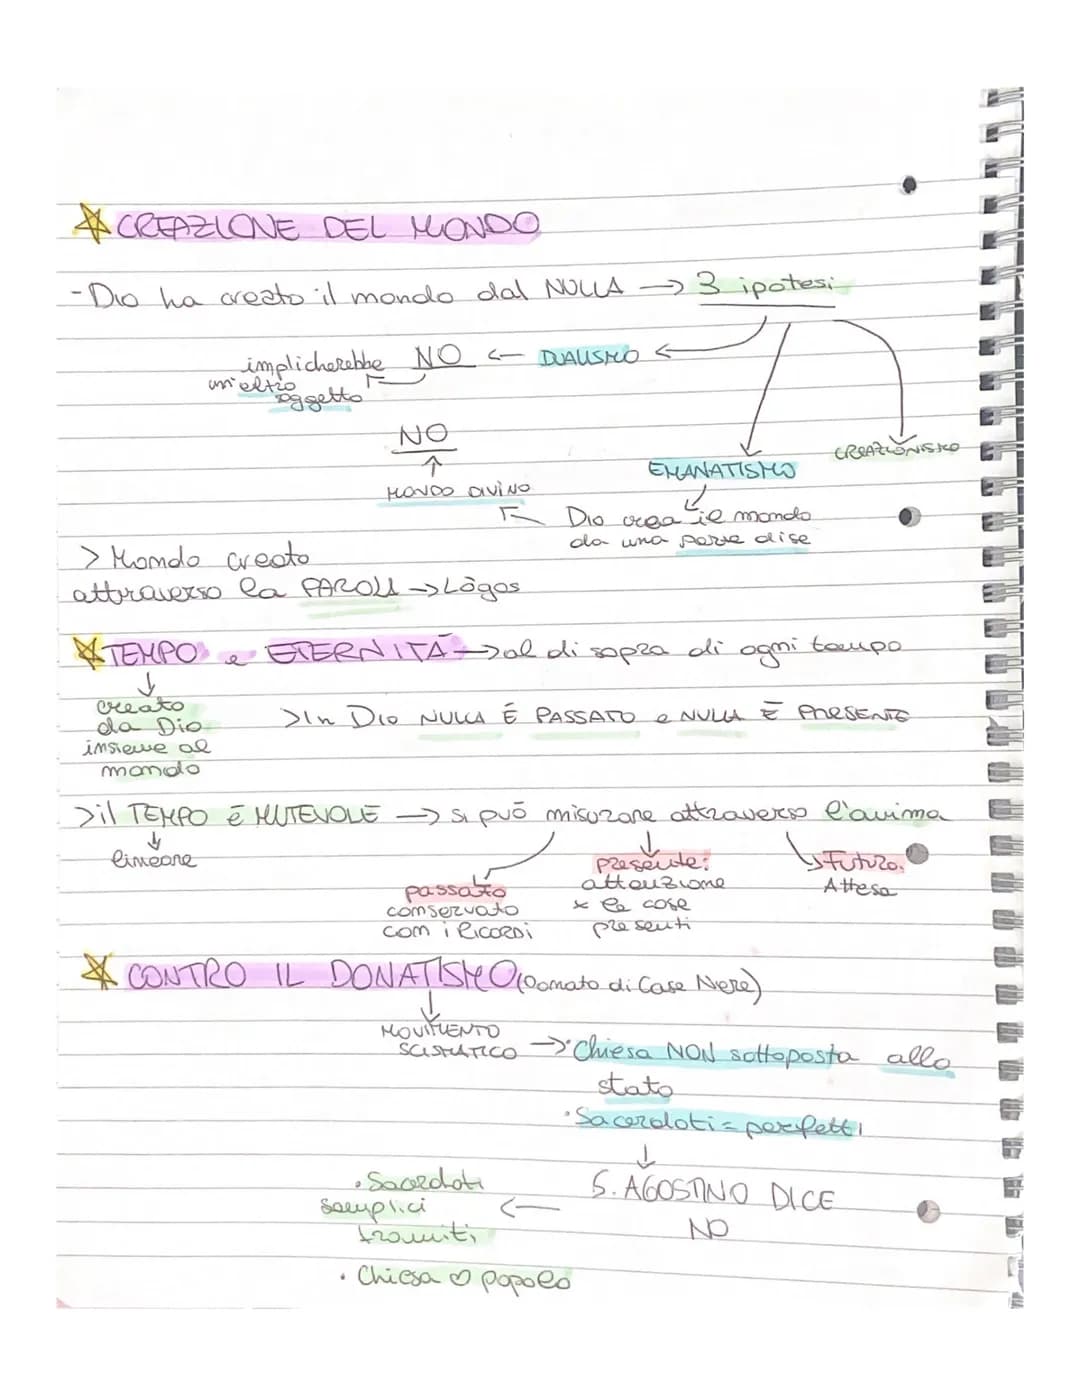 CREAZIONE DEL MONDO
- Dio ha creato il mondo dal NULLA → 3 ipotesi
implicherebbe NO ← DUALISMO
un'altro
oggetto
NO
↑
MONDO DIVINO
CREAZIONISMO
EMANATISMO
Dio crea il mondo
da una parte di se
> Mondo creato
attraverso la PAROLA → Lògos
TEMPO e ETERNITÀ → al di sopra di ogni tempo
↓
creato
da Dio
insieme al
mondo
> In Dio NULLA È PASSATO e NULLA È PRESENTE
> il TEMPO È MUTEVOLE → si può misurare attraverso l'anima
↓
lineare
passato
conservato
con i RICORDI
presente:
attenzione
x le cose
presenti
Futuro:
Attesa
CONTRO IL DONATISMO (Donato di Case Nere)
↓
MOVIMENTO
SCISMATICO → • Chiesa NON sottoposta allo
stato
• Sacerdoti = perfetti
↓
S. AGOSTINO DICE
NO
←
• Sacerdoti
semplici
tramiti
• Chiesa ♡ popolo